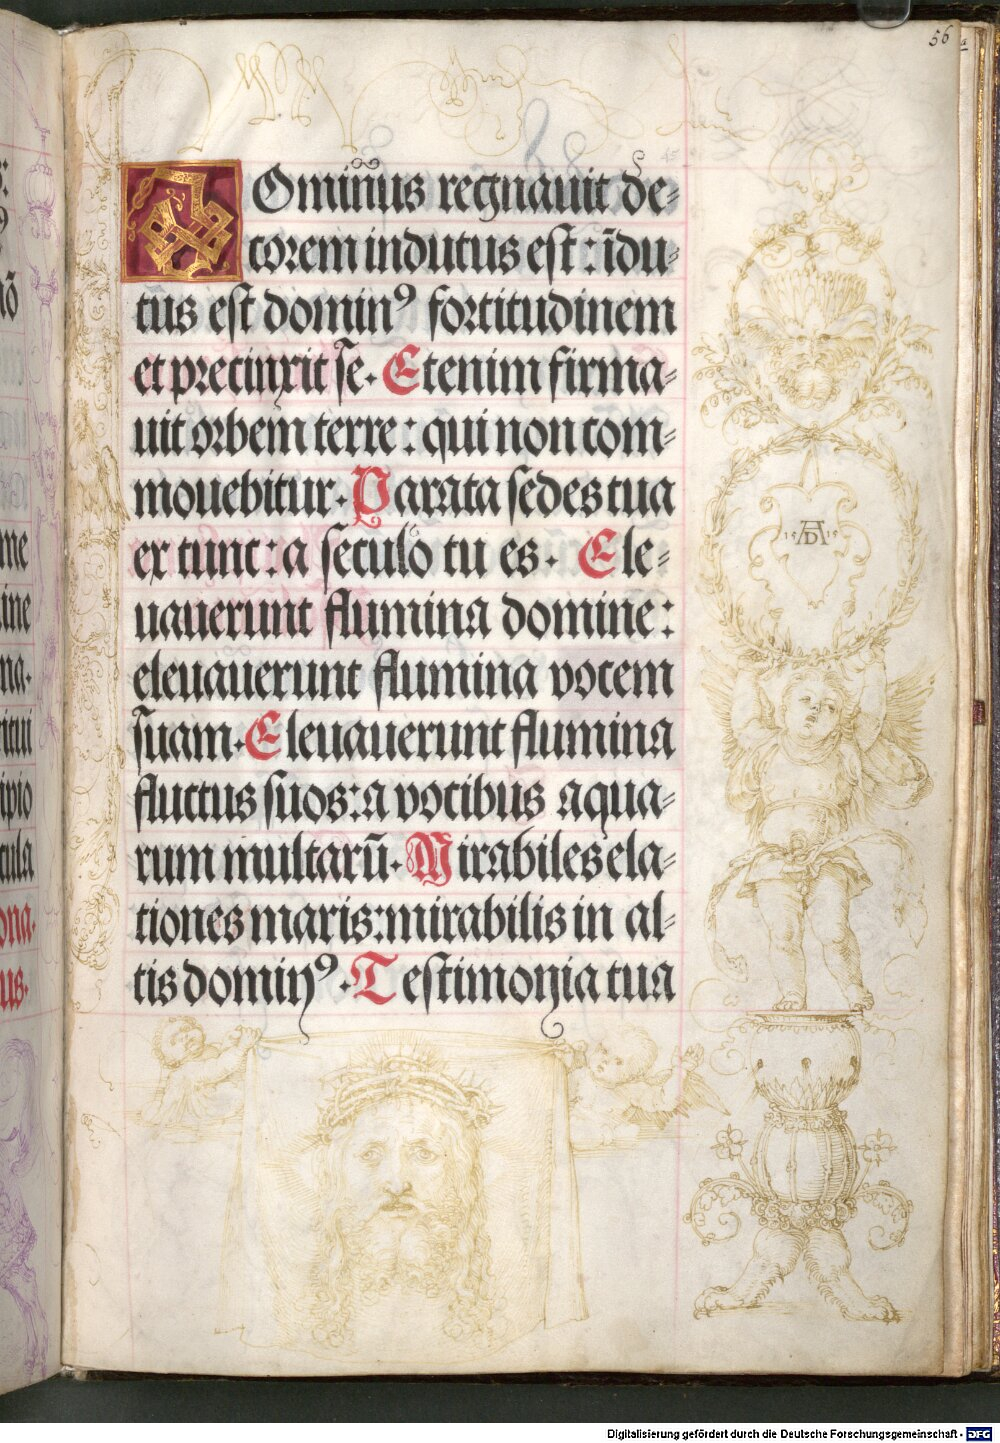 56
Dominus regnauit de⸗
corem indutus est : īdu⸗
tus est dominꝰ fortitudinem
et precinxit se · Etenim firma⸗
uit orbem terre : qui non com⸗
mouebitur · Parata sedes tua
ex tunc : a seculo tu es · Ele⸗
uauerunt flumina domine :
eleuauerunt flumina vocem
suam · Eleuauerunt flumina
fluctus suos : a vocibus aqua⸗
rum multarū · Mirabiles ela⸗
tiones maris : mirabilis in al⸗
tis dominꝰ · Testimonia tua
15 AD 15
me
ine
na·
ipio
cula
ona·
us·
Digitalisierung gefördert durch die Deutsche Forschungsgemeinschaft - DFG